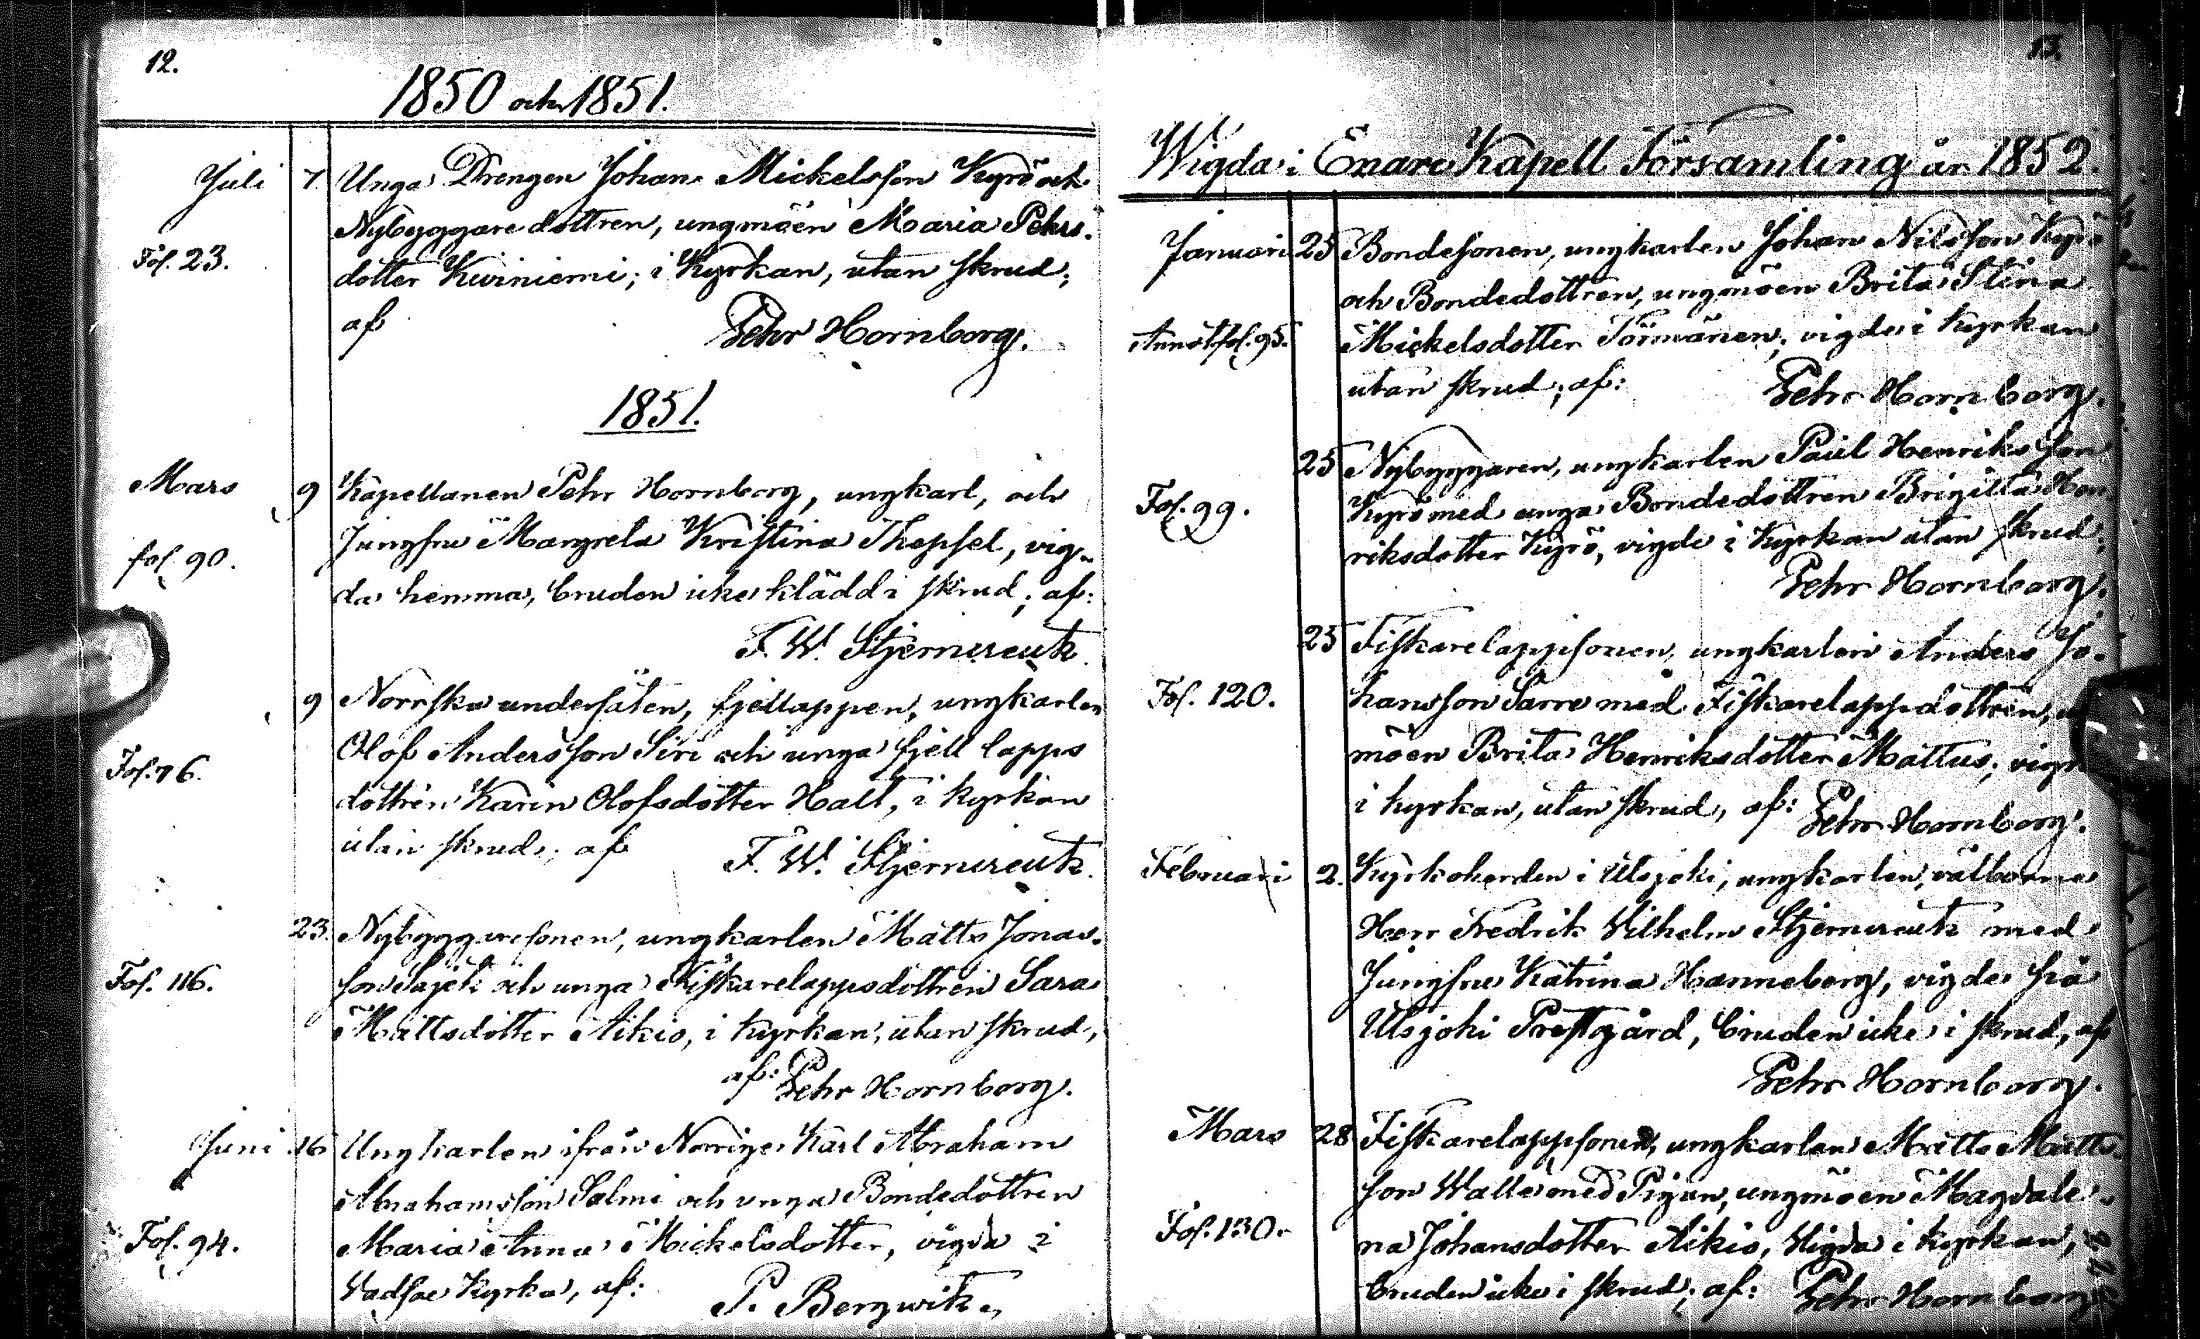 12.
1850 och 1851.
Juli 7. Unga Drengen Johan Mickelsson Kyrö och
Nybyggaredottren, ungmöen Maria Pehrs-
Fol. 23.
dotter Kiviniemi; i Kyrkan, utan skrud;
af Pehr Hornborg.
1851.
Mars 9 Kapellanen Pehr Hornborg, ungkarl, och
Jungfru Margreta Kristina Thepsel, vig-
fol. 90.
da hemma, bruden icke klädd i skrud; af:
F. W. Stjerncreutz.
9 Norrska undersåten, fjellappen, ungkarlen
Olof Andersson Siri och unga fjell lapps
Fol. 76.
dottren Karin Olofsdotter Halt, i kyrkan
utan skrud; af F. W. Stjerncreutz.
23. Nybyggaresonen, ungkarlen Matts Jonas-
Fol. 116.
son Sajets och unga Fiskarelappsdottren Sara
Mattsdotter Aikio, i kyrkan, utan skrud,
af: Pehr Hornborg.
Juni 16 Ungkarlen ifrån Norrige Karl Abraham
Abrahamsson Salmi och unga Bondedottren
Fol. 94.
Maria Anna Mickelsdotter, vigda i
Vadsoe Kyrka, af: P. Bergwik.
13.
Wigda i Enare Kapell Församling år 1852.
Januari 25 Bondesonen, ungkarlen Johan Nilsson Kyrö
och Bondedottren, ungmöen Brita Stina
Annotfol. 95.
Mickelsdotter Törmänen; vigde i kyrkan
utan skrud; af: Pehr Hornborg.
25 Nybyggaren, ungkarlen Paul Henriksson
Fol. 99.
Kyrö med unga Bondedottren Brigitta Hen
riksdotter Kyrö, vigde i Kyrkan utan skrud;
Pehr Hornborg.
25 Fiskarelappsonen, ungkarlen Anders Jo-
Fol. 120.
hansson Sarre med Fiskarelappdottren,
möen Brita Henriksdotter Mattus; vigde
i kyrkan, utan skrud, af: Pehr Hornborg.
Februari 2. Kyrkoherden i Utsjoki, ungkarlen, välborne
Herr Fredrik Vilhelm Stjerncreutz med
Jungfru Katrina Hanneberg, vigde på
Utsjoki Prestgård, bruden icke i skrud, af
Pehr Hornborg.
Mars 28 Fiskarelappsonen, ungkarlen Matts Matts-
son Walle med Pigan, ungmöen Magdale-
Fol. 130.
na Johansdotter Aikio, Wigda i kyrkan,
bruden icke i skrud; af: Pehr Hornborg